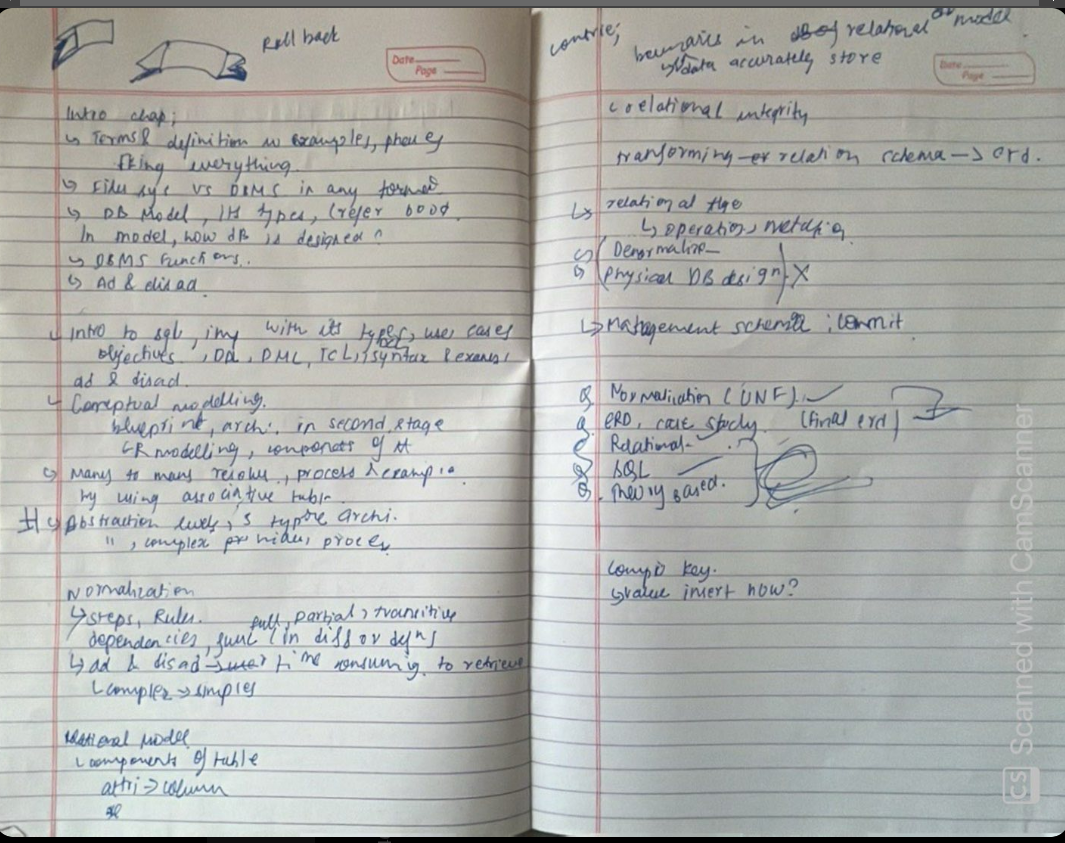 Roll back
Date
Page
Intro chap;
↳ Terms & definition w examples, phones
fking everything.
↳ File sys vs DBMS in any format
↳ DB Model, it types, (refer book
In model, how db is designed?
↳ DBMS Functions.
↳ Ad & disad.
↳ Intro to sql, with its types, use cases
objectives, DDL, DML, TCL, syntax &
ad & disad.
↳ Conceptual modelling.
blueprint, archi. in second stage
ER modelling, components of it
↳ Many to many resolve, process & example
by using associative table.
↳ Abstraction levels, 3 type archi.
" , complex process
Normalization
↳ steps, Rules. full, partial, transitive
dependencies, func (in diff or defns
↳ ad & disad → time consuming to retrieve
↳ complex → simples
Relational model
↳ components of table
attri → column
boundaries in relational model
↳ data accurately store
Date
Page
corelational integrity
transforming er relation schema → erd.
↳ relational
↳ operations
↳ Denormalize
↳ Physical DB design X
↳ Management schema : commit
Q. Normalisation (UNF). ✓
Q. ERD, case study. (final erd)
Q. Relational
Q. SQL
Q. Theory based.
key.
↳ value insert how?
CS Scanned with CamScanner